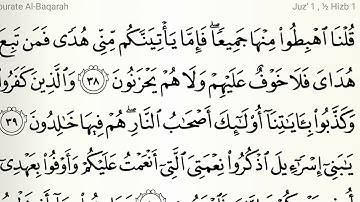 ourate Al-Baqarah Juz' 1 , ½ Hizb 1
قُلْنَا ٱهْبِطُوا۟ مِنْهَا جَمِيعًۭا ۖ فَإِمَّا يَأْتِيَنَّكُم مِّنِّى هُدًۭى فَمَن تَبِعَ
هُدَاىَ فَلَا خَوْفٌ عَلَيْهِمْ وَلَا هُمْ يَحْزَنُونَ ٣٨ وَٱلَّذِينَ كَفَرُوا۟
وَكَذَّبُوا۟ بِـَٔايَـٰتِنَآ أُو۟لَـٰٓئِكَ أَصْحَـٰبُ ٱلنَّارِ ۖ هُمْ فِيهَا خَـٰلِدُونَ ٣٩
يَـٰبَنِىٓ إِسْرَٰٓءِيلَ ٱذْكُرُوا۟ نِعْمَتِىَ ٱلَّتِىٓ أَنْعَمْتُ عَلَيْكُمْ وَأَوْفُوا۟ بِعَهْدِىٓ